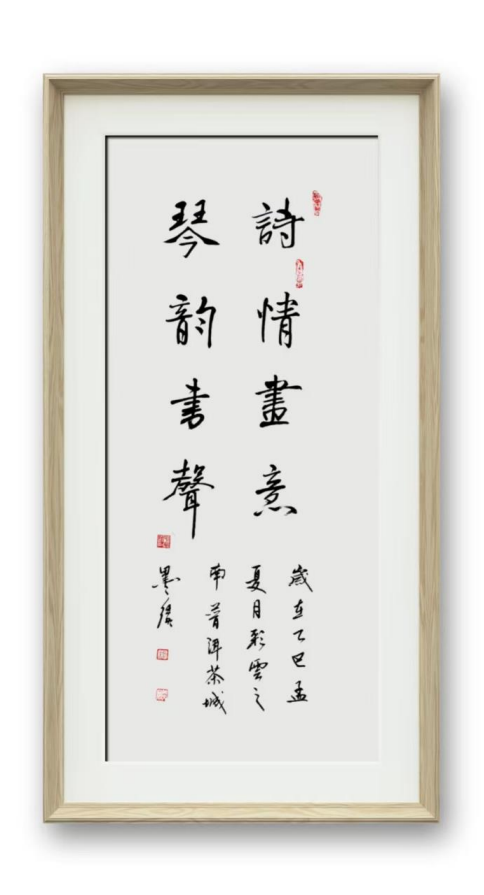 詩情畫意
琴韵书聲
歲在乙巳孟
夏月彩雲之
南普洱茶城
墨